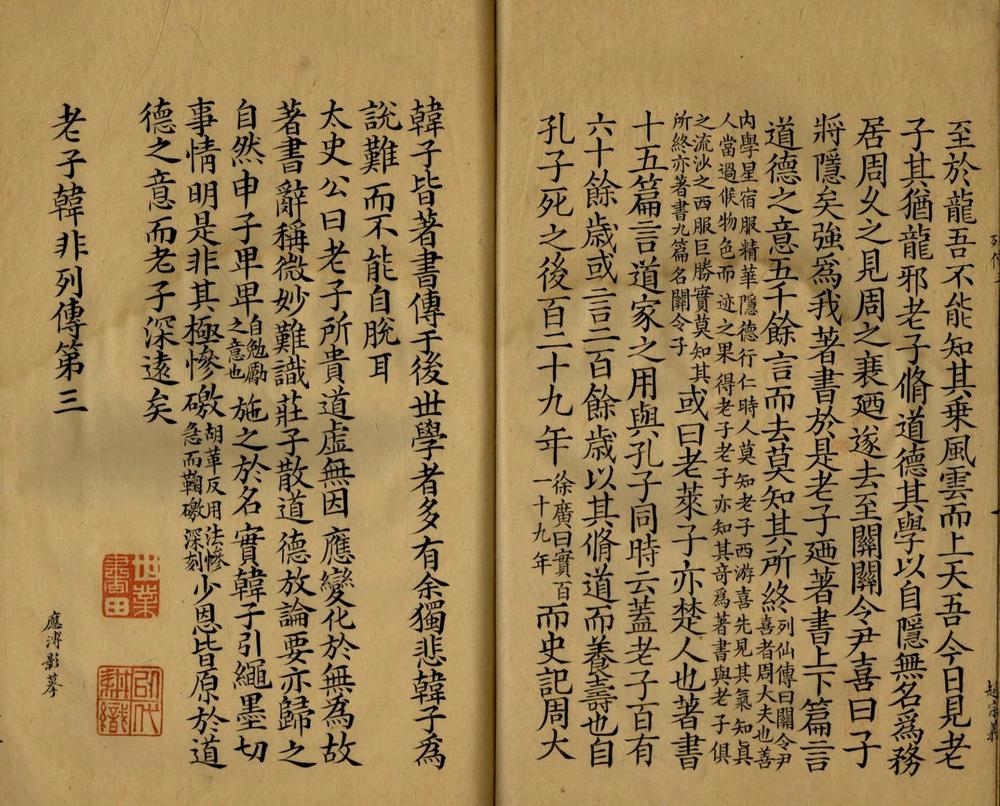 至於龍吾不能知其乘風雲而上天吾今日見老
子其猶龍邪老子脩道德其學以自隱無名爲務
居周久之見周之衰廼遂去至關關令尹喜曰子
將隱矣強爲我著書於是老子廼著書上下篇言
道德之意五千餘言而去莫知其所終列仙傳曰關令尹喜者周大夫也善
內學星宿服精華隱德行仁時人莫知老子西游喜先見其氣知真
人當過候物色而迹之果得老子老子亦知其奇爲著書與老子俱
之流沙之西服巨勝實莫知其所終亦著書九篇名關令子或曰老萊子亦楚人也著書
十五篇言道家之用與孔子同時云蓋老子百有
六十餘歲或言二百餘歲以其脩道而養壽也自
孔子死之後百二十九年徐廣曰實百一十九年而史記周大
韓子皆著書傳于後世學者多有余獨悲韓子爲
說難而不能自脫耳
太史公曰老子所貴道虛無因應變化於無為故
著書辭稱微妙難識莊子散道德放論要亦歸之
自然申子卑卑自勉勵之意也施之於名實韓子引繩墨切
事情明是非其極慘礉胡革反用法慘急而鞠礉深刻少恩皆原於道
德之意而老子深遠矣
老子韓非列傳第三
世業書田
應溥影摹